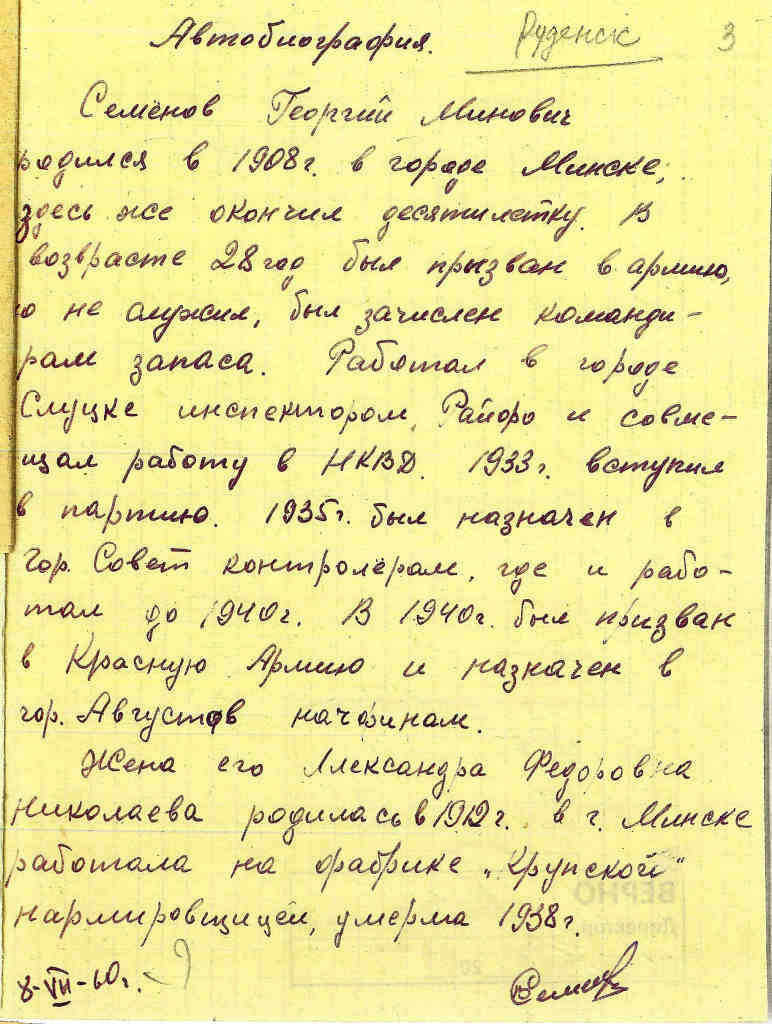 Автобиография. Руденск 3
Семёнов Георгий Минович
родился в 1908г. в городе Минске,
здесь же окончил десятилетку. В
возврасте 28 год был призван в армию,
но не служил, был зачислен команди-
рам запаса. Работал в городе
Слуцке инспектором Райоро и совме-
щал работу в НКВД. 1933г. вступил
в партию. 1935г. был назначен в
Гор. Совет контролёрам, где и рабо-
тал до 1940г. В 1940г. был призван
в Красную Армию и назначен в
гор. Августов начфинам.
Жена его Александра Федоровна
Николаева родилась в 1912г. в г. Минске
работала на фабрике „Крупской"
нармировщицей, умерла 1938г.
8-VII-60г.
ВЕРНО
Директор
20